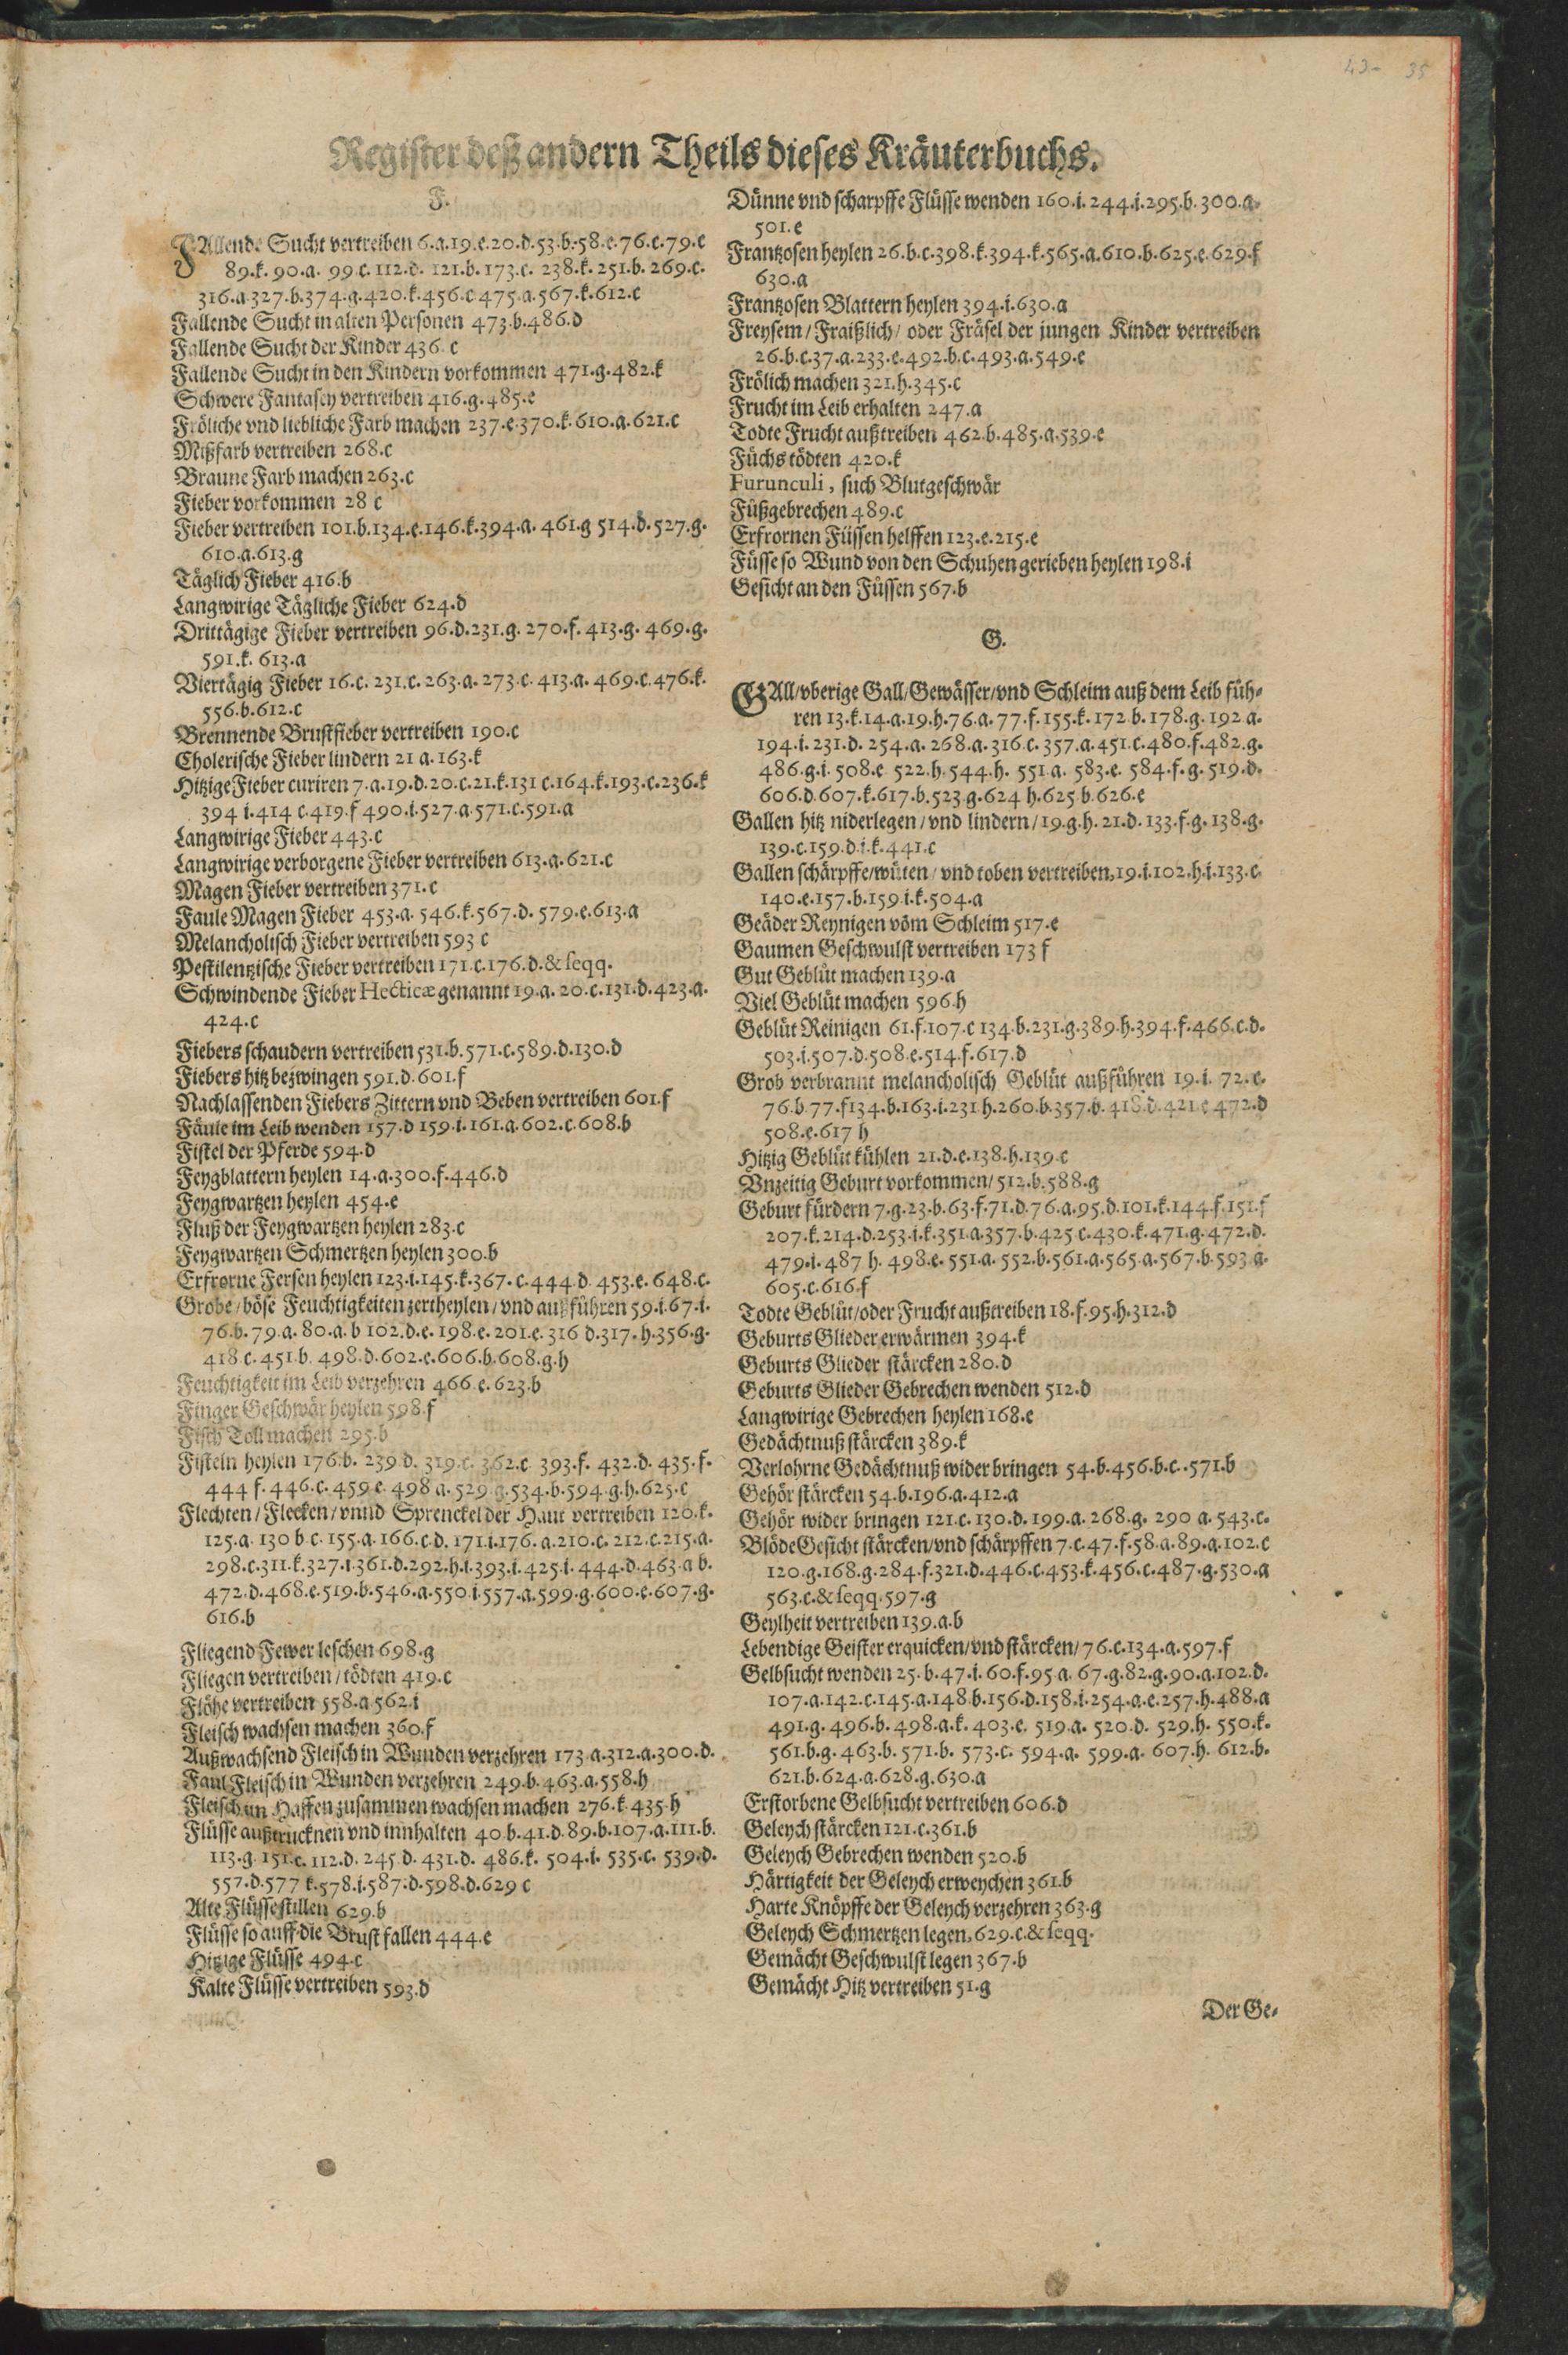 43- 35
Register deß andern Theils dieses Kräuterbuchs.
F.
FAllende Sucht vertreiben 6.a.19.e.20.d.53.b.58.e.76.c.79.c
89.k. 90.a. 99 c. 112.d. 121.b. 173.c. 238.k. 251.b. 269.c.
316.a 327.b.374.g.420.k.456.c 475.a.567.k.612.c
Fallende Sucht in alten Personen 473.b.486.d
Fallende Sucht der Kinder 436 c
Fallende Sucht in den Kindern vorkommen 471.g.482.k
Schwere Fantasey vertreiben 416.g.485.e
Fröliche vnd liebliche Farb machen 237.e.370.k.610.a.621.c
Mißfarb vertreiben 268.c
Braune Farb machen 263.c
Fieber vorkommen 28 c
Fieber vertreiben 101.b.134.e.146.k.394.a. 461.g 514.d.527.g.
610.a.613.g
Täglich Fieber 416.b
Langwirige Tägliche Fieber 624.d
Drittägige Fieber vertreiben 96.d.231.g. 270.f. 413.g. 469.g.
591.k. 613.a
Viertägig Fieber 16.c. 231.c. 263.a. 273.c. 413.a. 469.c.476.k.
556.b.612.c
Brennende Brustfieber vertreiben 190.c
Cholerische Fieber lindern 21 a.163.k
Hitzige Fieber curiren 7.a.19.d.20.c.21.k.131 c.164.k.193.c.236.k
394 i.414 c.419.f 490.i.527.a.571.c.591.a
Langwirige Fieber 443.c
Langwirige verborgene Fieber vertreiben 613.a.621.c
Magen Fieber vertreiben 371.c
Faule Magen Fieber 453.a. 546.k.567.d. 579.e.613.a
Melancholisch Fieber vertreiben 593 c
Pestilentzische Fieber vertreiben 171.c.176.d.&seqq.
Schwindende Fieber Hecticæ genannt 19.a. 20.c.131.d.423.a.
424.c
Fiebers schaudern vertreiben 531.b.571.c.589.d.130.d
Fiebers hitz bezwingen 591.d.601.f
Nachlassenden Fiebers Zittern vnd Beben vertreiben 601.f
Fäule im Leib wenden 157.d 159.i.161.a.602.c.608.b
Fistel der Pferde 594.d
Feygblattern heylen 14.a.300.f.446.d
Feygwartzen heylen 454.e
Fluß der Feygwartzen heylen 283.c
Feygwartzen Schmertzen heylen 300.b
Erfrorne Fersen heylen 123.i.145.k.367.c.444.d. 453.e. 648.c.
Grobe/böse Feuchtigkeiten zertheylen/vnd außführen 59.i.67.i.
76.b.79.a. 80.a.b 102.d.e. 198.e. 201.e. 316 d.317.h.356.g.
418.c.451.b. 498.d.602.c.606.b.608.g.h
Feuchtigkeit im Leib verzehren 466.e.623.b
Finger Geschwär heylen 598.f
Fisch Toll machen 295.b
Fisteln heylen 176.b. 239 d. 319.c. 362.c 393.f. 432.d. 435.f.
444 f.446.c.459 e. 498 a.529 g.534.b.594.g.h.625.c
Flechten/Flecken/vnnd Sprenckel der Haut vertreiben 120.k.
125.a. 130 b c. 155.a. 166.c.d. 171.i.176. a.210.c. 212.c.215.a.
298.c.311.k.327.i.361.d.292.h.i.393.i.425.i.444.d.463 a b.
472.d.468.e.519.b.546.a.550.i.557.a.599.g.600.e.607.g.
616.b
Fliegend Fewer leschen 698.g
Fliegen vertreiben/tödten 419.c
Flöhe vertreiben 558.a 562.i
Fleisch wachsen machen 360.f
Außwachsend Fleisch in Wunden verzehren 173.a.312.a.300.d.
Faul Fleisch in Wunden verzehren 249.b.463.a.558.h
Fleisch im Haffen zusammen wachsen machen 276.k.435.h
Flüsse außtrucknen vnd innhalten 40.b.41.d.89.b.107.a.111.b.
113.g. 151.c. 112.d. 245 d. 431.d. 486.k. 504.i. 535.c. 539.d.
557.d.577 k.578.i.587.d.598.d.629 c
Alte Flüsse stillen 629.b
Flüsse so auff die Brust fallen 444.e
Hitzige Flüsse 494.c
Kalte Flüsse vertreiben 593.d
Dünne vnd scharpffe Flüsse wenden 160.i.244.i.295.b.300.a.
501.e
Frantzosen heylen 26.b.c.398.k.394.k.565.a.610.b.625.e.629.f
630.a
Frantzosen Blattern heylen 394.i.630.a
Freysem/Fraißlich/oder Fräsel der jungen Kinder vertreiben
26.b.c.37.a.233.e.492.b.c.493.a.549.e
Frölich machen 321.h.345.c
Frucht im Leib erhalten 247.a
Todte Frucht außtreiben 462.b.485.a.539.e
Füchs tödten 420.k
Furunculi, such Blutgeschwär
Füßgebrechen 489.c
Erfrornen Füssen helffen 123.e.215.e
Füsse so Wund von den Schuhen gerieben heylen 198.i
Gesicht an den Füssen 567.b
G.
GAll/vberige Gall/Gewässer/vnd Schleim auß dem Leib füh-
ren 13.k.14.a.19.h.76.a. 77.f.155.k.172 b.178.g. 192 a.
194.i.231.d. 254.a. 268.a. 316.c. 357.a.451.c.480.f.482.g.
486.g.i. 508.e 522.h.544.h. 551 a. 583.e. 584.f.g. 519.d.
606.d.607.k.617.b.523 g.624 h.625 b.626.e
Gallen hitz niderlegen/vnd lindern/19.g.h. 21.d. 133.f.g. 138.g.
139.c.159.d.i.k.441.c
Gallen schärpffe/wüten/vnd toben vertreiben,19.i.102.h.i.133.c.
140.e.157.b.159.i.k.504.a
Geäder Reynigen vöm Schleim 517.e
Gaumen Geschwulst vertreiben 173 f
Gut Geblüt machen 139.a
Viel Geblüt machen 596.h
Geblüt Reinigen 61.f.107.c 134.b.231.g.389.h.394.f.466.c.d.
503.i.507.d.508.e.514.f.617.d
Grob verbrannt melancholisch Geblüt außführen 19.i. 72.e.
76.b.77.f134.b.163.i.231 h.260.b.357.b.418.d.421.e 472.d
508.e.617 h
Hitzig Geblüt kühlen 21.d.e.138.h.139.c
Vnzeitig Geburt vorkommen/512.b.588.g
Geburt fürdern 7.g.23.b.63.f.71.d.76.a.95.d.101.k.144.f.151.f
207.k.214.d.253.i.k.351.a.357.b.425 c.430.k.471.g.472.d.
479.i.487 h. 498.e. 551.a. 552.b.561.a.565.a.567.b.593 a.
605.c.616.f
Todte Geblüt/oder Frucht außtreiben 18.f.95.h.312.d
Geburts Glieder erwärmen 394.k
Geburts Glieder stärcken 280.d
Geburts Glieder Gebrechen wenden 512.d
Langwirige Gebrechen heylen 168.e
Gedächtnuß stärcken 389.k
Verlohrne Gedächtnuß wider bringen 54.b.456.b.c.571.b
Gehör stärcken 54.b.196.a.412.a
Gehör wider bringen 121.c. 130.d. 199.a. 268.g. 290 a. 543.c.
Blöde Gesicht stärcken/vnd schärpffen 7.c.47.f.58.a.89.a.102.c
120.g.168.g.284.f.321.d.446.c.453.k.456.c.487.g.530.a
563.c.&seqq.597.g
Geylheit vertreiben 139.a.b
Lebendige Geister erquicken/vnd stärcken/76.c.134.a.597.f
Gelbsucht wenden 25.b.47.i.60.f.95 a. 67.g.82.g.90.a.102.d.
107.a.142.c.145.a.148.b.156.d.158.i.254.a.e.257.h.488.a
491.g. 496.b. 498.a.k. 403.e. 519.a. 520.d. 529.h. 550.k.
561.b.g. 463.b. 571.b. 573.c. 594.a. 599.a. 607.h. 612.b.
621.b.624.a.628.g.630.a
Erstorbene Gelbsucht vertreiben 606.d
Geleych stärcken 121.c.361.b
Geleych Gebrechen wenden 520.b
Härtigkeit der Geleych erweychen 361.b
Harte Knöpffe der Geleych verzehren 363.g
Geleych Schmertzen legen,629.c.&seqq.
Gemächt Geschwulst legen 367.b
Gemächt Hitz vertreiben 51.g
Der Ge-